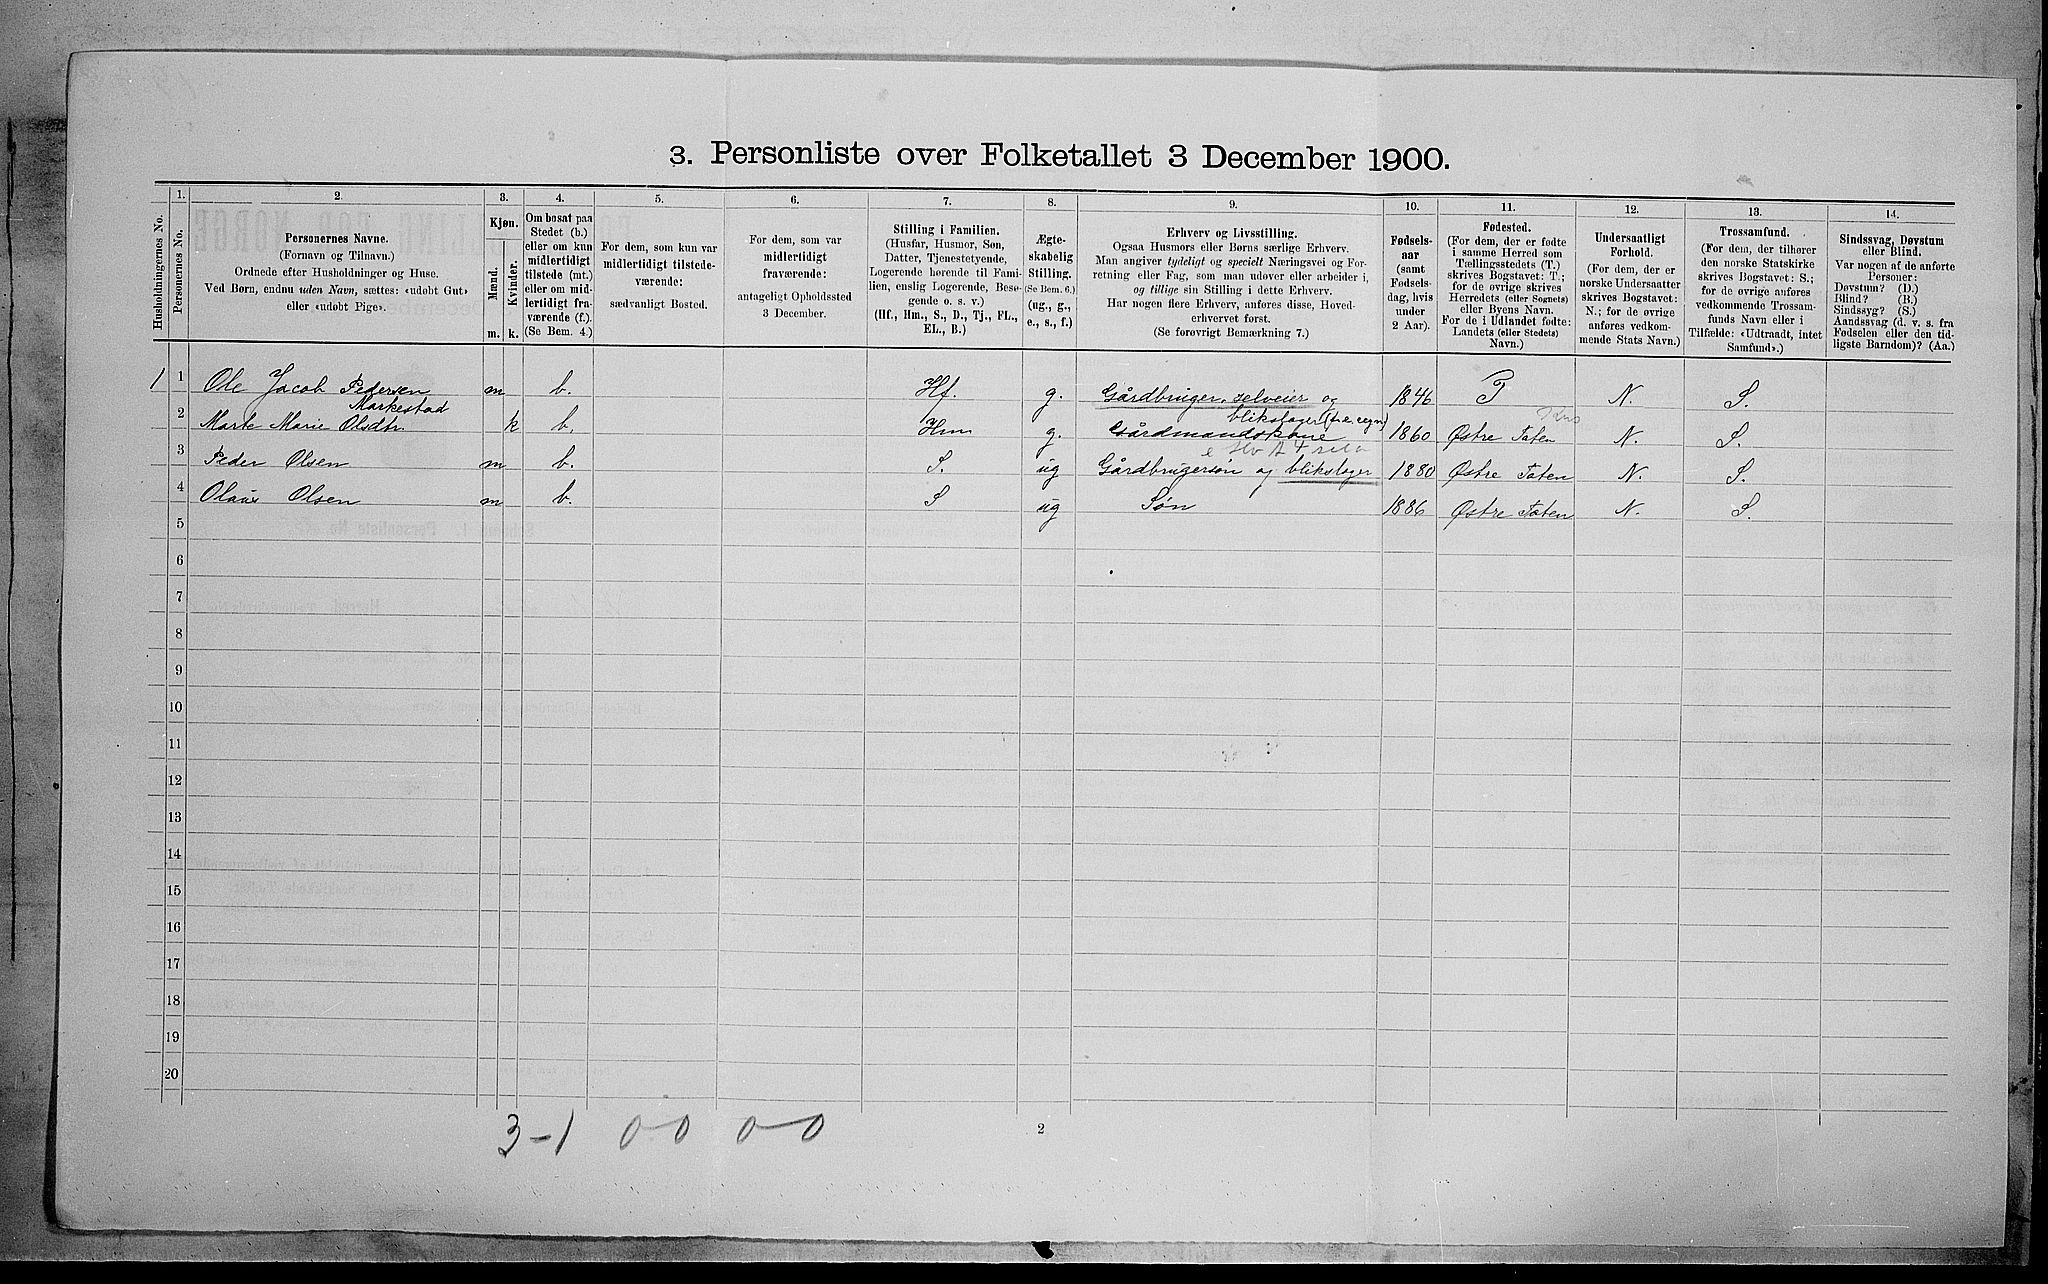 3. Personliste over Folketallet 3 December 1900.
Husholdningernes No.
1.
Personernes No.
2.
Personernes Navne.
(Fornavn og Tilnavn.)
Ordnede efter Husholdninger og Huse.
Ved Børn, endnu uden Navn, sættes: «udøbt Gut»
eller «udøbt Pige».
3.
Kjøn.
Mænd.
Kvinder.
m. k.
4.
Om bosat paa
Stedet (b.)
eller om kun
midlertidigt
tilstede (mt.)
eller om mid-
lertidigt fra-
værende (f.).
(Se Bem. 4.)
5.
For dem, som kun var
midlertidigt tilstede-
værende:
sædvanligt Bosted.
6.
For dem, som var
midlertidigt
fraværende:
antageligt Opholdssted
3 December.
7.
Stilling i Familien.
(Husfar, Husmor, Søn,
Datter, Tjenestetyende,
Logerende hørende til Fami-
lien, enslig Logerende, Besø-
gende o. s. v.)
(Hf., Hm., S., D., Tj., FL.,
EL., B.)
8.
Ægte-
skabelig
Stilling.
(Se Bem. 6.)
(ug., g.,
e., s., f.)
9.
Erhverv og Livsstilling.
Ogsaa Husmors eller Børns særlige Erhverv.
Man angiver tydeligt og specielt Næringsvei og For-
retning eller Fag, som man udøver eller arbeider i,
og tillige sin Stilling i dette Erhverv.
Har nogen flere Erhverv, anføres disse, Hoved-
erhvervet først.
(Se forøvrigt Bemærkning 7.)
10.
Fødsels-
aar
(samt
Fødsels-
dag, hvis
under
2 Aar).
11.
Fødested.
(For dem, der er fødte
i samme Herred som
Tællingsstedets (T.)
skrives Bogstavet: T.;
for de øvrige skrives
Herredets (eller Sognets)
eller Byens Navn.
For de i Udlandet fødte:
Landets (eller Stedets)
Navn.)
12.
Undersaatligt
Forhold.
(For dem, der er
norske Undersaatter
skrives Bogstavet:
N.; for de øvrige
anføres vedkom-
mende Stats Navn.)
13.
Trossamfund.
(For dem, der tilhører
den norske Statskirke
skrives Bogstavet: S.;
for de øvrige anføres
vedkommende Trossam-
funds Navn eller i
Tilfælde: «Udtraadt, intet
Samfund».)
14.
Sindssvag, Døvstum
eller Blind.
Var nogen af de anførte
Personer:
Døvstum? (D.)
Blind? (B.)
Sindssyg? (S.)
Aandssvag (d. v. s. fra
Fødselen eller den tid-
ligste Barndom)? (Aa.)
1 1 Ole Jacob Pedersen m b. Hf. g. Gårdbruger, selveier og 1846 T N. S.
Markestad blikslager
2 Marte Marie Olsdtr k b. Hm g. Gårdmandskone 1860 Østre Toten N. S.
3 Peder Olsen m b. S. ug Gårdbrugersøn og blikslager 1880 Østre Toten N. S.
4 Olaus Olsen m b. S ug Søn 1886 Østre Toten N. S.
5
6
7
8
9
10
11
12
13
14
15
16
17
18
19
20
3-1 0-0 0-0
2